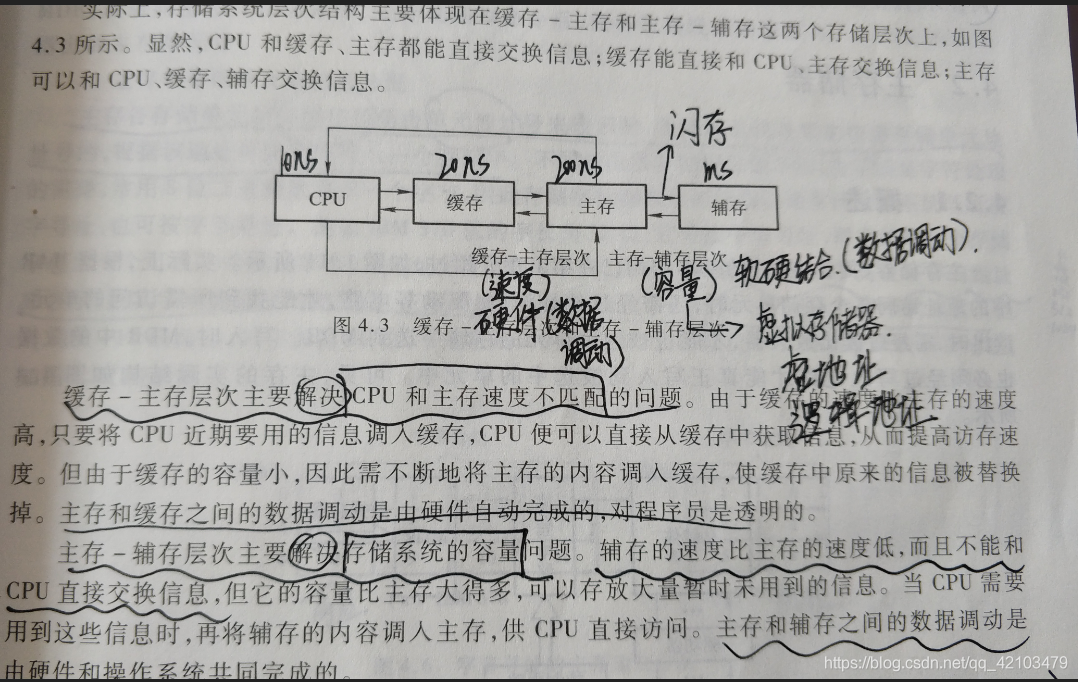 实际上,存储系统层次结构主要体现在缓存-主存和主存-辅存这两个存储层次上,如图
4.3 所示。显然,CPU 和缓存、主存都能直接交换信息;缓存能直接和 CPU、主存交换信息;主存
可以和 CPU、缓存、辅存交换信息。
闪存
10ns 20ns 200ns ms
CPU 缓存 主存 辅存
缓存-主存层次 主存-辅存层次
(速度) (容量) 软硬结合.(数据调动).
硬件(数据调动)
虚拟存储器.
虚地址
逻辑地址
图 4.3 缓存-主存层次和主存-辅存层次
缓存-主存层次主要解决CPU 和主存速度不匹配的问题。由于缓存的速度比主存的速度
高,只要将 CPU 近期要用的信息调入缓存,CPU 便可以直接从缓存中获取信息,从而提高访存速
度。但由于缓存的容量小,因此需不断地将主存的内容调入缓存,使缓存中原来的信息被替换
掉。主存和缓存之间的数据调动是由硬件自动完成的,对程序员是透明的。
主存-辅存层次主要解决存储系统的容量问题。辅存的速度比主存的速度低,而且不能和
CPU 直接交换信息,但它的容量比主存大得多,可以存放大量暂时未用到的信息。当 CPU 需要
用到这些信息时,再将辅存的内容调入主存,供 CPU 直接访问。主存和辅存之间的数据调动是
由硬件和操作系统共同完成的。
https://blog.csdn.net/qq_42103479